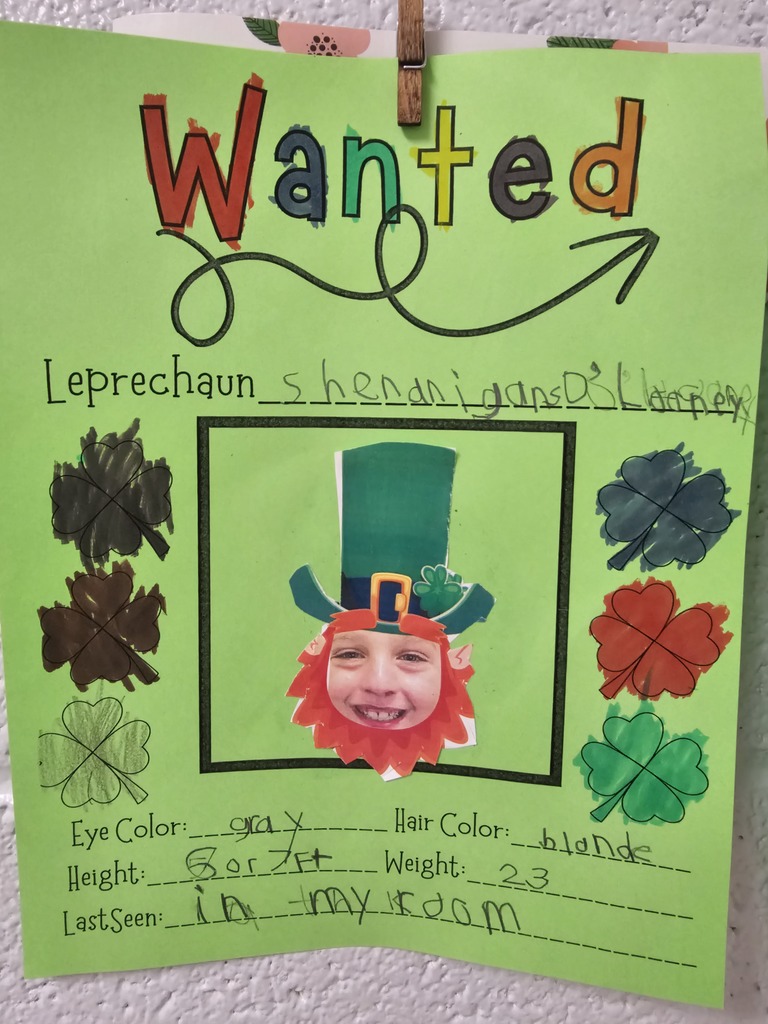 Wanted
Leprechaun shenanigans O'
Eye Color: gray Hair Color: blonde
Height: or 7 Ft Weight: 23
Last Seen: in my room